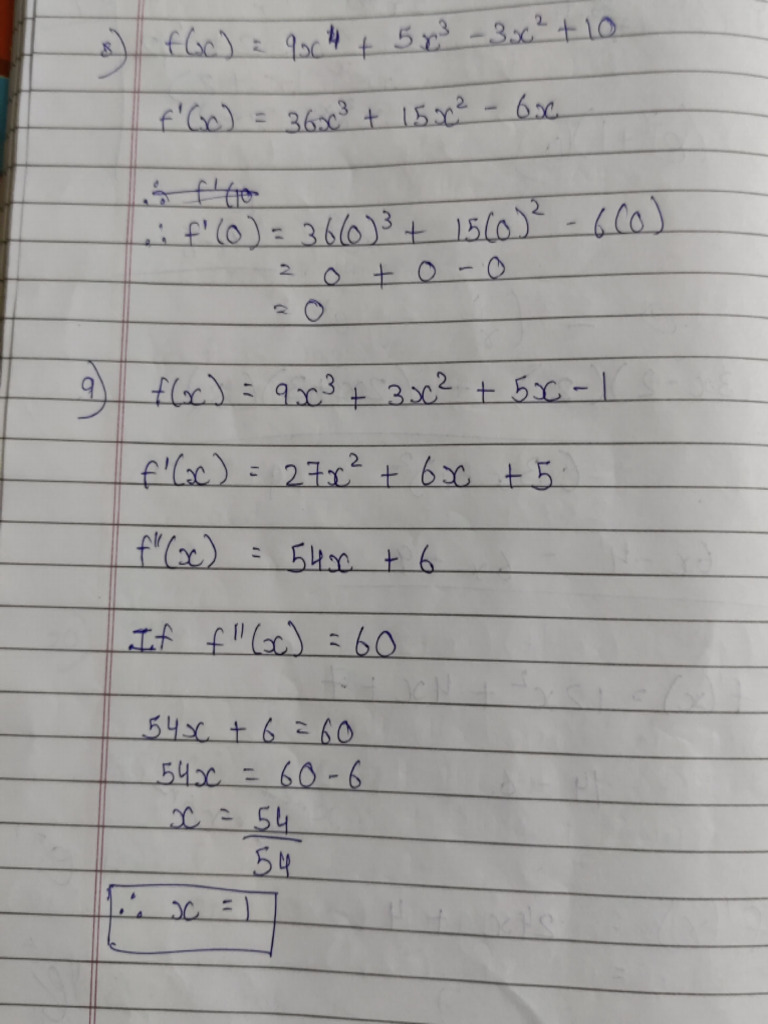 8) f(x) = 9x⁴ + 5x³ - 3x² + 10
f'(x) = 36x³ + 15x² - 6x
∴ f'(10
∴ f'(0) = 36(0)³ + 15(0)² - 6(0)
= 0 + 0 - 0
= 0
9) f(x) = 9x³ + 3x² + 5x - 1
f'(x) = 27x² + 6x + 5
f''(x) = 54x + 6
If f''(x) = 60
54x + 6 = 60
54x = 60 - 6
x = 54
54
∴ x = 1